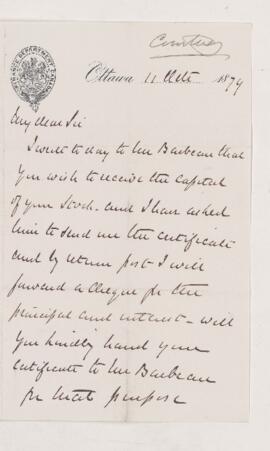 Courtney
FINANCE DEPARTMENT CANADA
Ottawa 11 Oct 1879
My dear Sir
I wrote to day to Mr Barbeau that
you wish to receive the Capital
of your Stock - and I have asked
him to send me the certificate
and by return post I will
forward a Cheque for the
principal and interest - will
you kindly hand your
certificate to Mr Barbeau
for that purpose